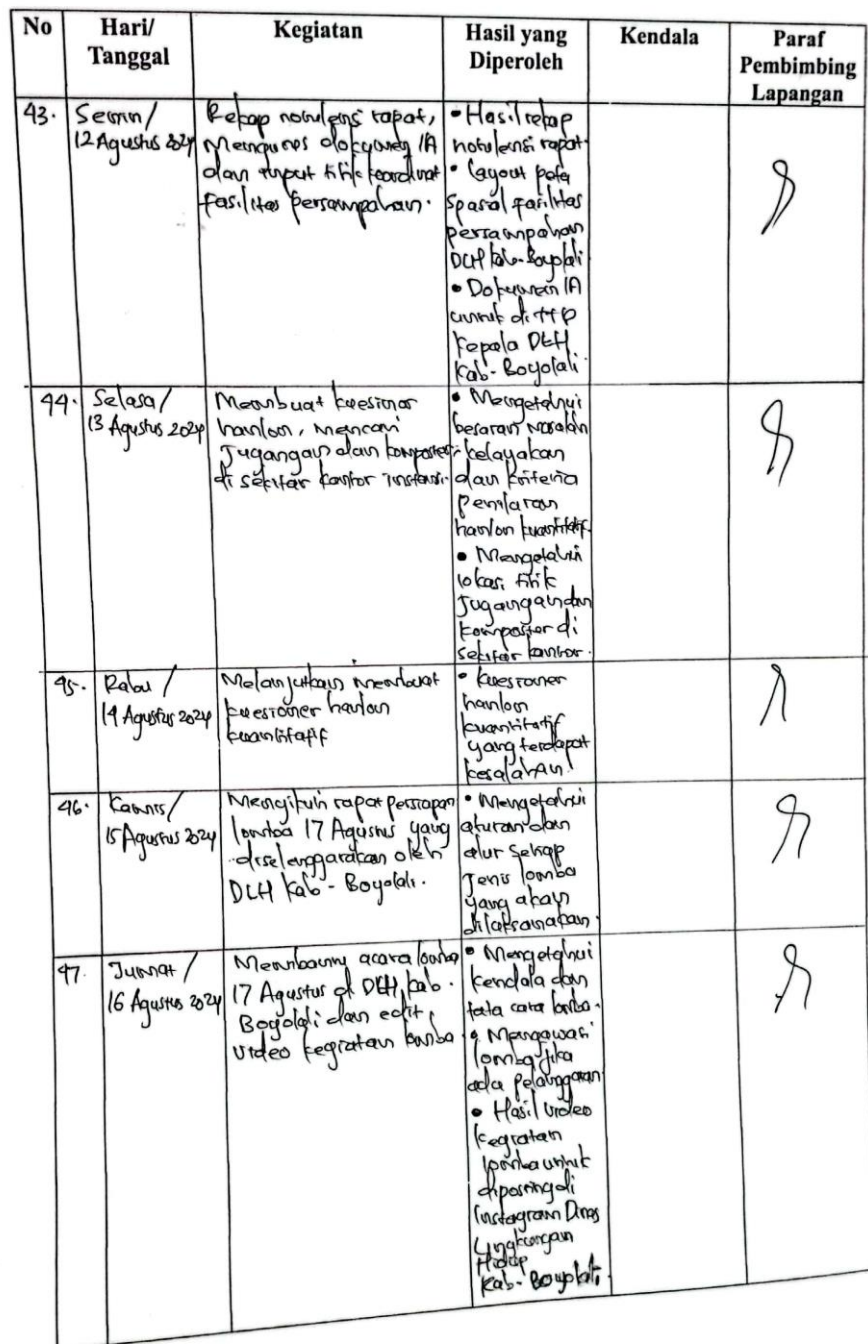 No Hari/ Tanggal Kegiatan Hasil yang Diperoleh Kendala Paraf Pembimbing Lapangan
43. Senin/
12 Agustus 2024
Rekap notulensi rapat,
Mengurus dokumen IA
dan input titik koordinat
fasilitas persampahan.
• Hasil rekap
notulensi rapat
• Layout peta
spasial fasilitas
persampahan
DLH Kab-Boyolali
• Dokumen IA
untuk di TTD
Kepala DLH
Kab-Boyolali.
44. Selasa/
13 Agustus 2024
Membuat kuesioner
hanlon, mencari
Jugangan dan komposter
di sekitar kantor instansi.
• Mengetahui
besaran masalah
kelayakan
dan kriteria
Penilaian
hanlon kuantitatif.
• Mengetahui
lokasi titik
Jugangan dan
komposter di
sekitar kantor.
45. Rabu /
14 Agustus 2024
Melanjutkan membuat
kuesioner hanlon
kuantitatif
• Kuesioner
hanlon
kuantitatif
yang terdapat
kesalahan.
46. Kamis/
15 Agustus 2024
Mengikuti rapat persiapan
lomba 17 Agustus yang
diselenggarakan oleh
DLH Kab - Boyolali.
• Mengetahui
aturan dan
alur setiap
Jenis lomba
yang akan
dilaksanakan.
47. Jumat /
16 Agustus 2024
Membantu acara lomba
17 Agustus di DLH Kab.
Boyolali dan edit
video kegiatan lomba.
• Mengetahui
kendala dan
tata cara lomba.
• Mengawasi
lomba jika
ada pelanggaran
• Hasil video
kegiatan
lomba untuk
diposting di
Instagram Dinas
Lingkungan
Hidup
Kab-Boyolali.